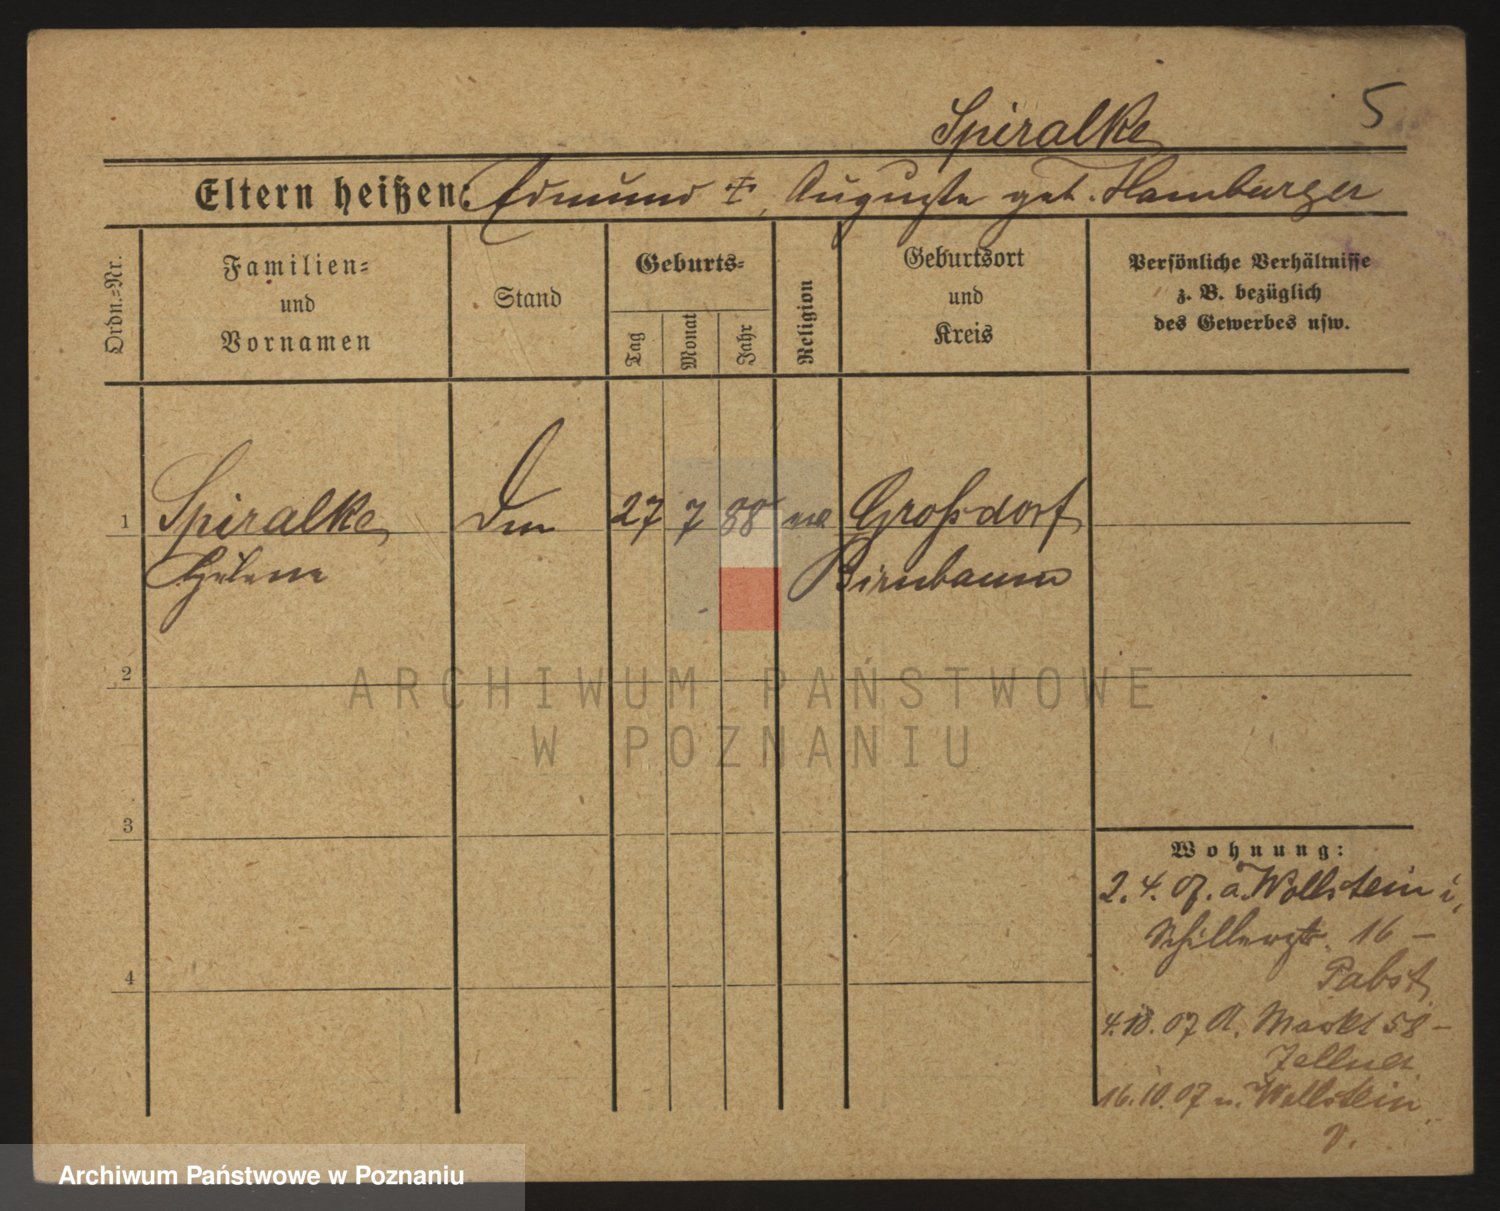 5
Spiralke
Eltern heißen: Edmund ‡, Auguste geb. Hamburger
Ordn.-Nr.
Familien-
und
Vornamen
Stand
Geburts-
Tag
Monat
Jahr
Religion
Geburtsort
und
Kreis
Persönliche Verhältnisse
z. B. bezüglich
des Gewerbes usw.
1 Spiralke 27 7 88 Großdorf
Helene Birnbaum
2
3
4
Wohnung:
2. 4. 07. a. Wollstein i,
Schillerstr. 16 –
Pabst
4. 10. 07 A. Markt 58 –
Zellner
16. 10. 07 n. Wollstein
ARCHIWUM PAŃSTWOWE
W POZNANIU
Archiwum Państwowe w Poznaniu